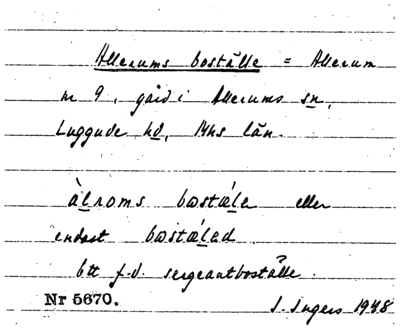 Allerums boställe = Allerum
nr 9, gård i Allerums sn,
Luggude hd, Mhs län.
àlroms bostǽle eller
endast bostǽled
Ett f.d. sergeantboställe.
Nr 5670.
I. Ingers 1948